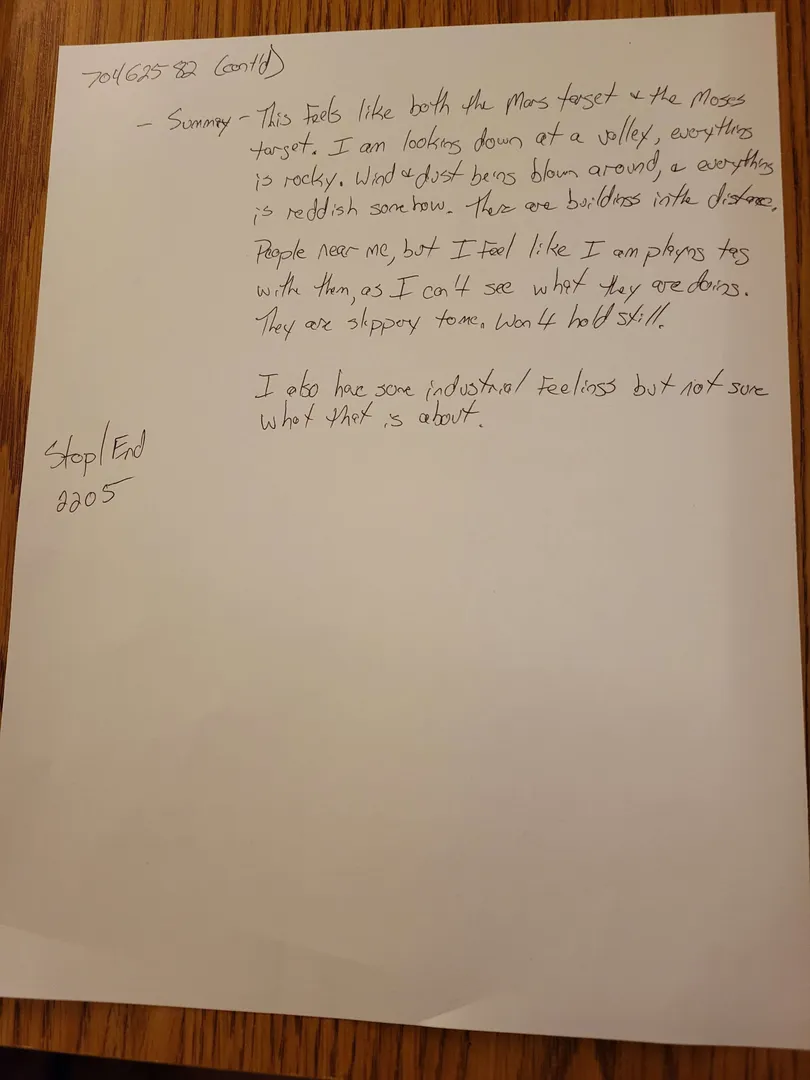 70462582 (cont'd)
- Summary - This feels like both the Mars target & the Moses
target. I am looking down at a valley, everything
is rocky. Wind & dust being blown around, & everything
is reddish somehow. There are buildings in the distance.
People near me, but I feel like I am playing tag
with them, as I can't see what they are doing.
They are slippery to me. Won't hold still.
I also have some industrial feelings but not sure
what that is about.
Stop/End
2205